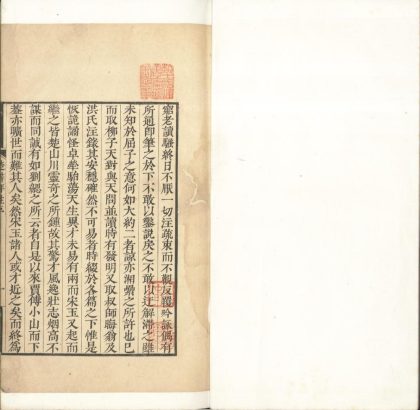 靈老讀騷終日不厭一切注疏束而不觀反覆吟詠偶有
所通即筆之於下不敢以鑿說戾之不敢以迂解滯之雖
未知於屈子之意何如大約二者諒亦湘纍之所許也巳
而取柳子天對與天問並讀時有發明又取叔師晦翁及
洪氏注錄其安穩確然不可易者時綴於各篇之下惟是
恢詭譎怪卓犖駘蕩天生異才未易有兩而宋玉又起而
繼之皆楚山川靈奇之所鍾故其驚才風逸壯志烟高不
謀而同誠有如劉勰之所云者自是以來賈傅小山而下
蓋亦曠世而難其人矣然宋玉諸人或才近之矣而終爲